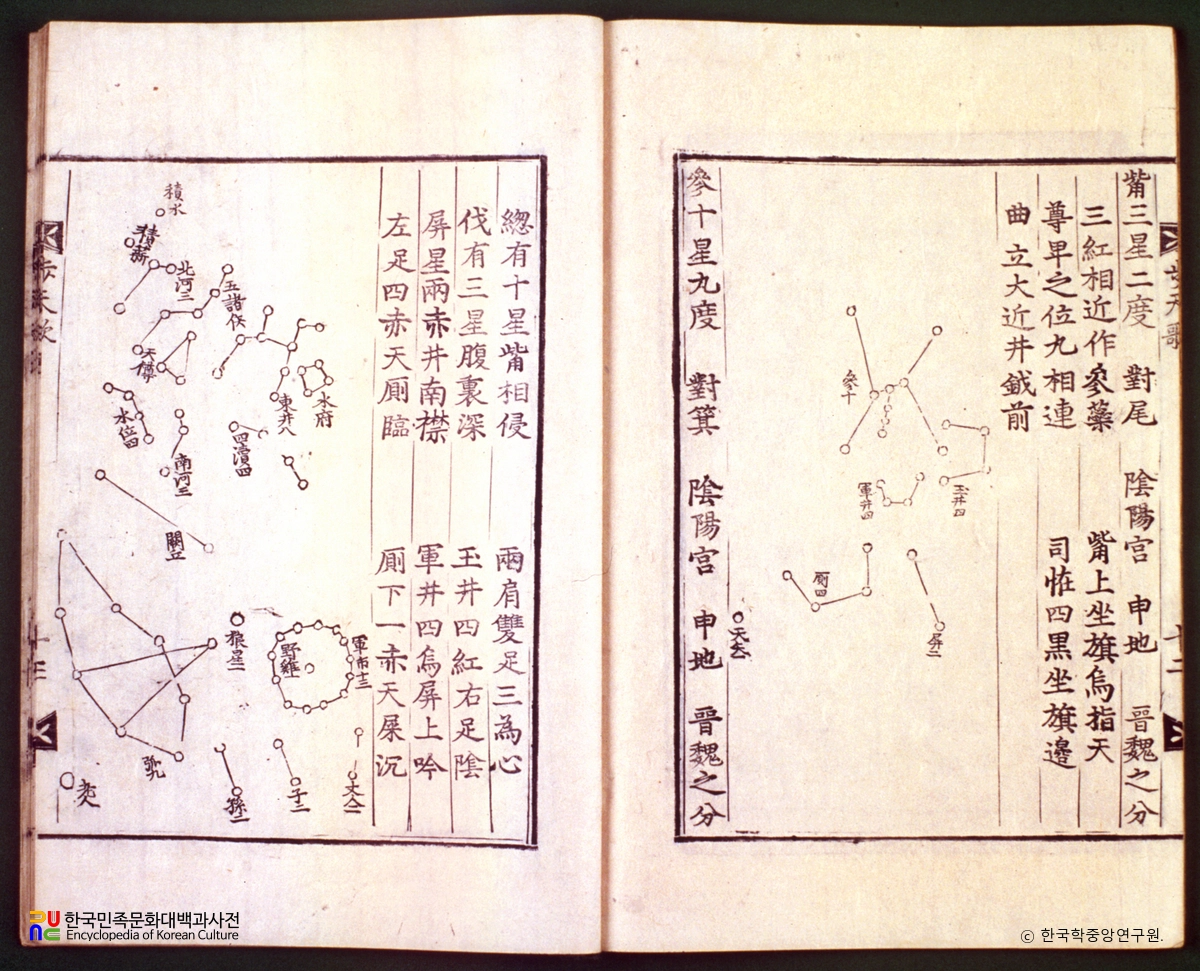 觜三星二度 對尾 陰陽宮 申地 晉魏之分
三紅相近作參蘂 觜上坐旗烏指天
尊卑之位九相連 司恠四黑坐旗邊
曲立大近井鉞前
參十
玉井四
軍井四
屏二
厠四
參十星九度 對箕 陰陽宮 申地 晉魏之分
總有十星觜相侵 兩肩雙足三為心
伐有三星腹裏深 玉井四紅右足陰
屏星兩赤井南襟 軍井四烏屏上吟
左足四赤天厠臨 厠下一赤天屎沉
積水
北河三
五諸侯
天樽
水府
東井八
水位四
四瀆四
南河三
狼星一
野雞
軍市十三
弧九
孫二
子二
丈人二
老人
한국민족문화대백과사전
Encyclopedia of Korean Culture
ⓒ 한국학중앙연구원.